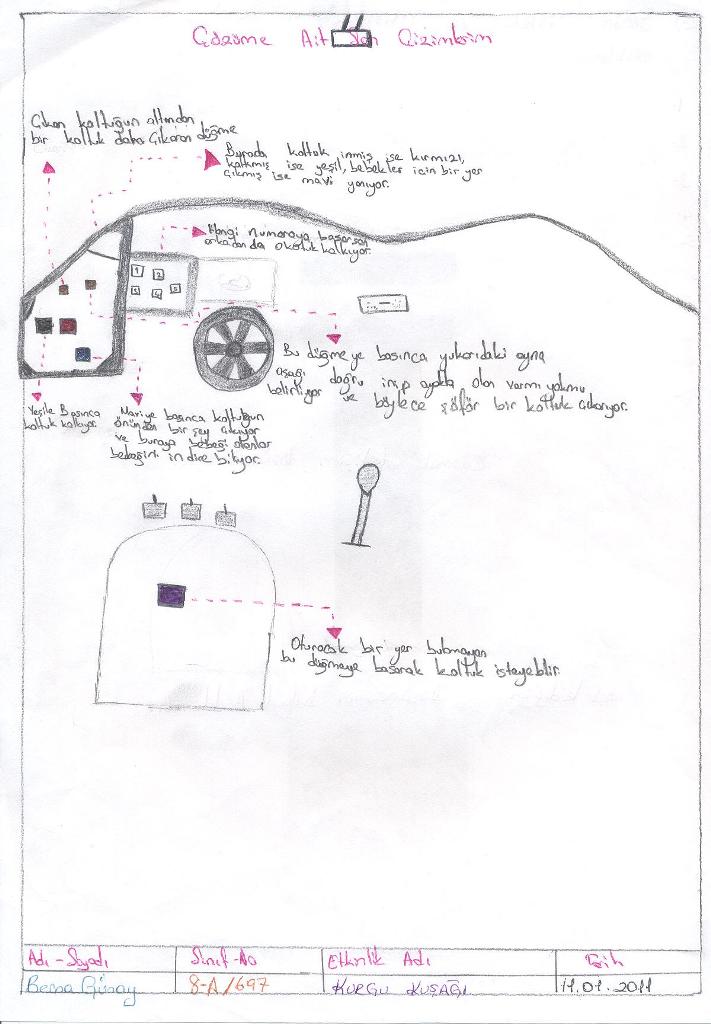 Çözüme Ait Son Çizimlerim
Çıkan koltuğun altından
bir koltuk daha çıkaran düğme
Burada koltuk inmiş ise kırmızı,
kalkmış ise yeşil, bebekler için bir yer
çıkmış ise mavi yanıyor.
Hangi numaraya basarsan
arkadan da o koltuk kalkıyor.
1 2
3 4 5
Bu düğmeye basınca yukarıdaki ayna
aşağı doğru inip ayakta olan varmı yokmu
belirtiyor ve böylece şöför bir koltuk çıkarıyor.
Yeşile Basınca
koltuk kalkıyor.
Maviye basınca koltuğun
önünden bir şey çıkıyor
ve buraya bebeği olanlar
bebeğini indire biliyor.
Oturacak bir yer bulmayan
bu düğmeye basarak koltuk isteyebilir.
Adı-Soyadı Sınıf-No Etkinlik Adı Tarih
Günay 8-A/697 KURGU KUŞAĞI 11.01.2011